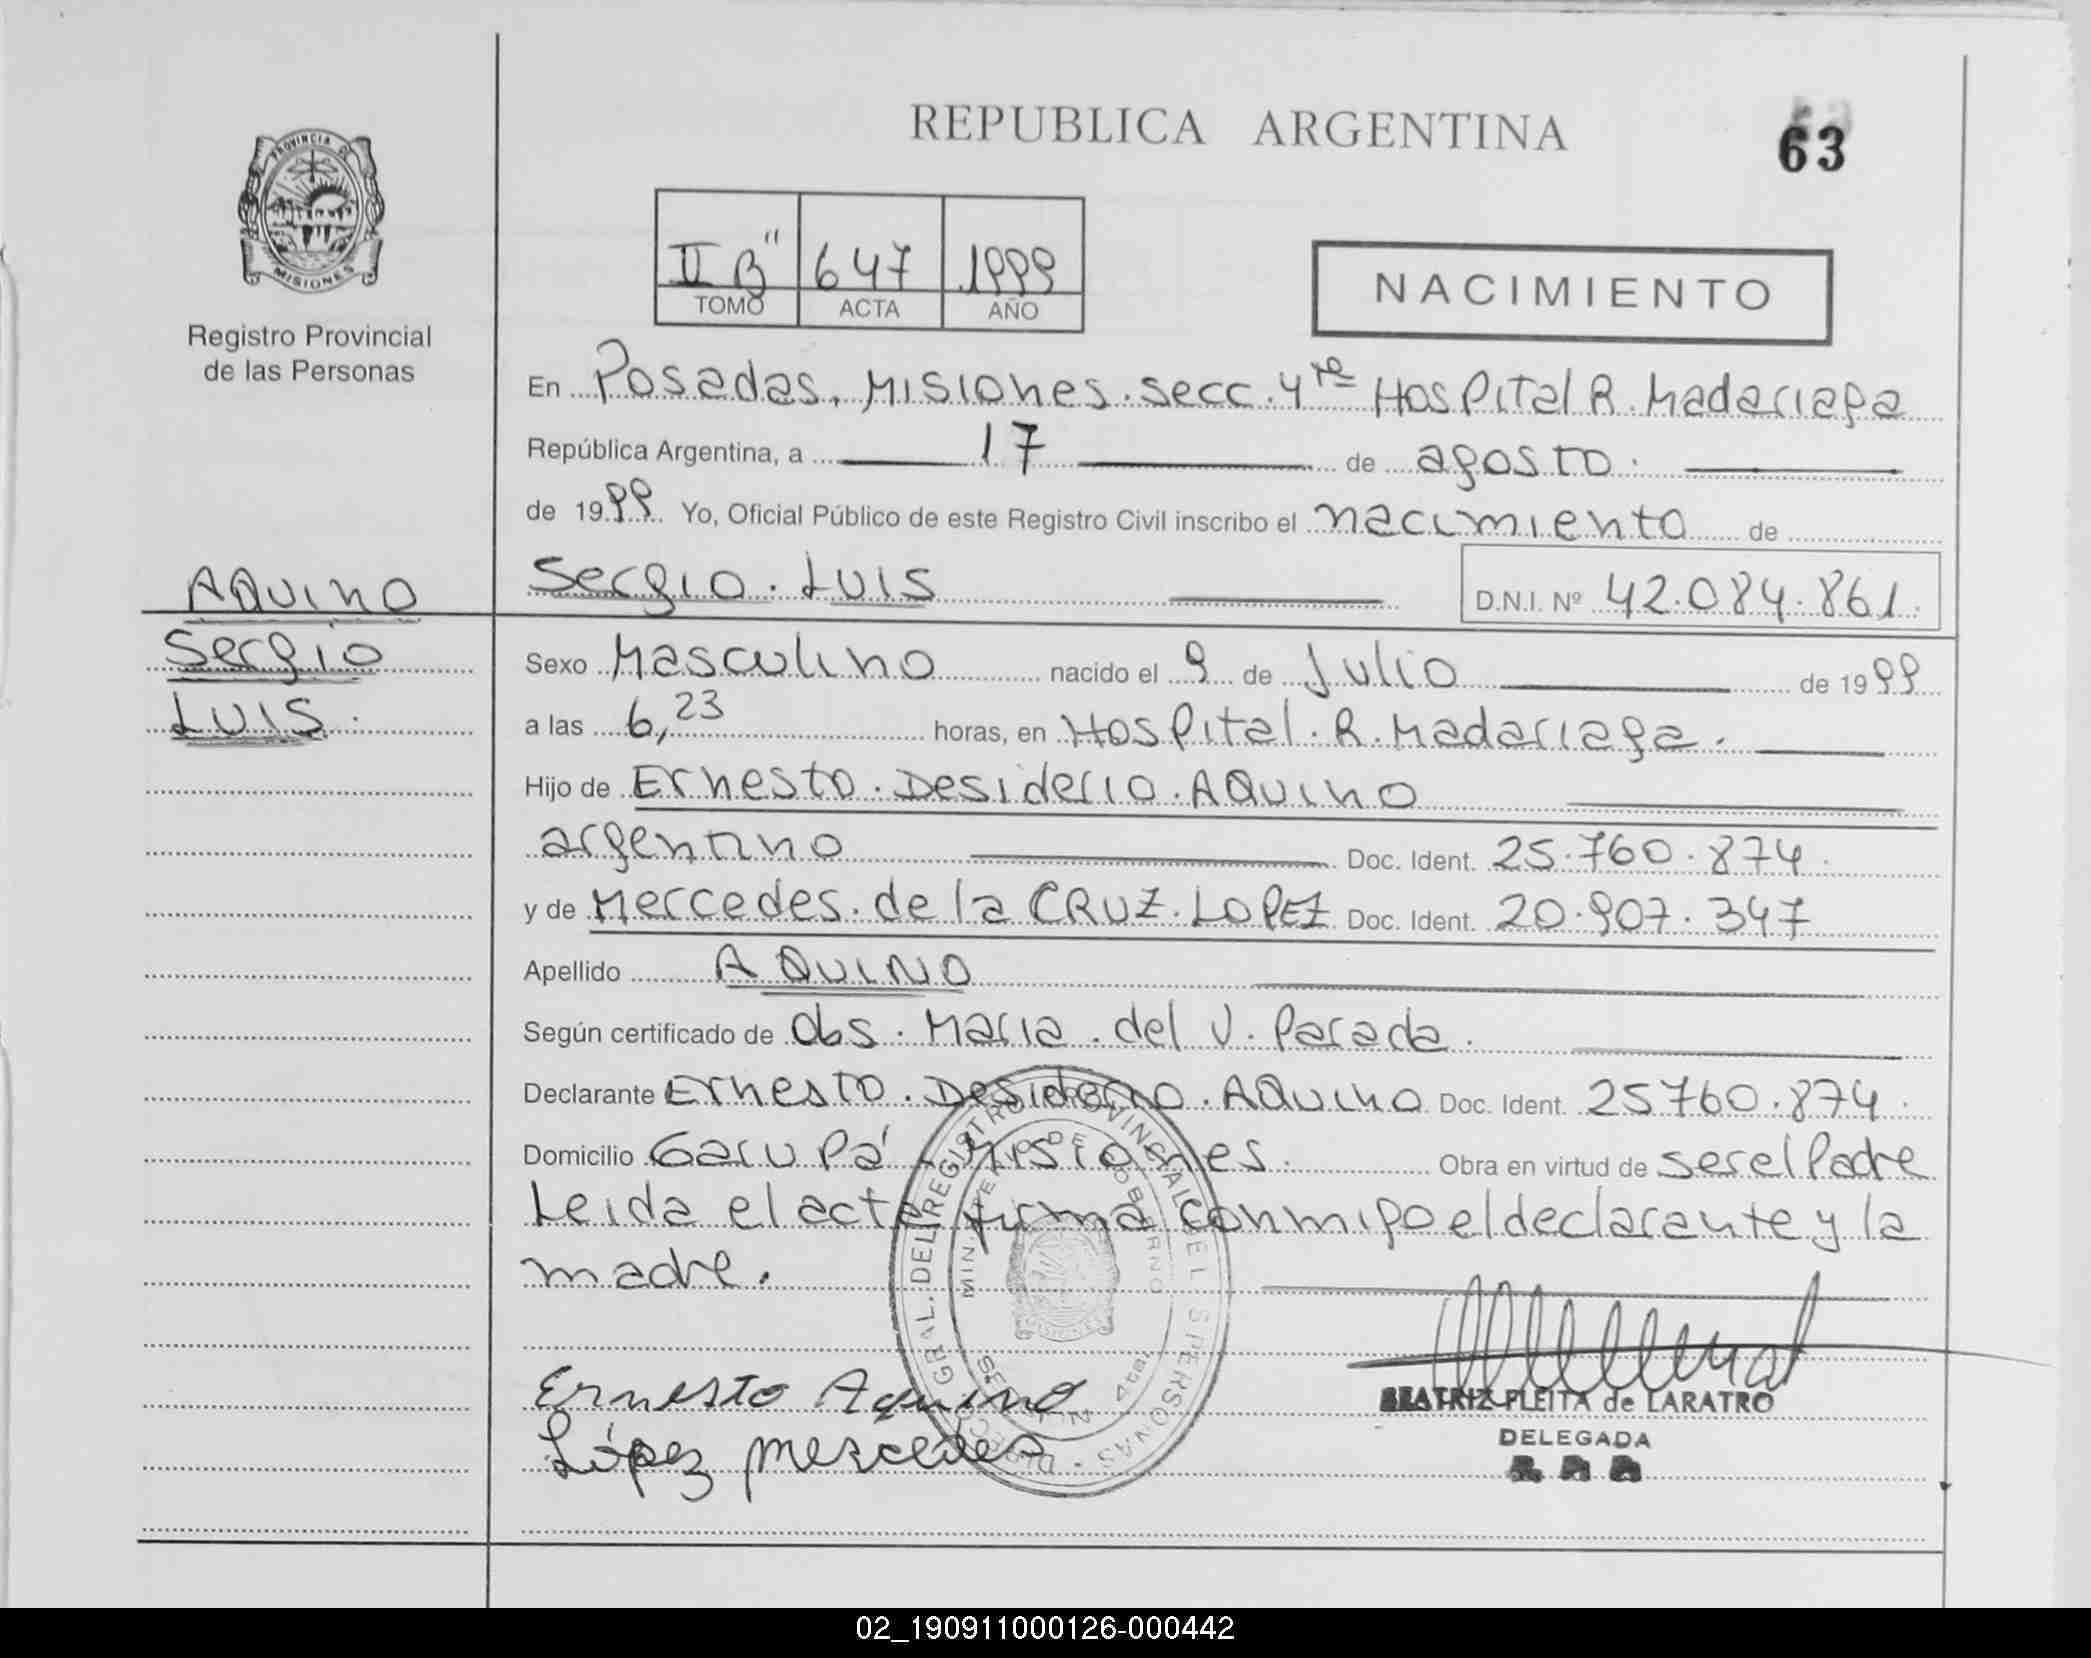 REPUBLICA ARGENTINA
63
PROVINCIA DE
MISIONES
Registro Provincial
de las Personas
II B"
647
1999
TOMO
ACTA
AÑO
NACIMIENTO
En Posadas, Misiones. secc. 4ta Hospital R. Madariaga
República Argentina, a 17 de agosto.
de 1999 Yo, Oficial Público de este Registro Civil inscribo el nacimiento de
AQuino
Sergio
Luis.
Sergio. Luis
D.N.I. Nº 42.084.861.
Sexo Masculino nacido el 9 de Julio de 1999
a las 6,23 horas, en Hospital. R. Madariaga.
Hijo de Ernesto. Desiderio. AQuino
argentino Doc. Ident. 25.760.874.
y de Mercedes. de la CRUZ. LOPEZ Doc. Ident. 20.907.347
Apellido AQUINO
Según certificado de Obs. Maria. del V. Parada.
Declarante Ernesto. Desiderio. AQuino Doc. Ident. 25760.874.
Domicilio Garupá Misiones. Obra en virtud de ser el Padre
Leida el acta firma conmigo el declarante y la
madre.
Ernesto Aquino
López mercedes
BEATRIZ PLEITA de LARATRO
DELEGADA
02_190911000126-000442